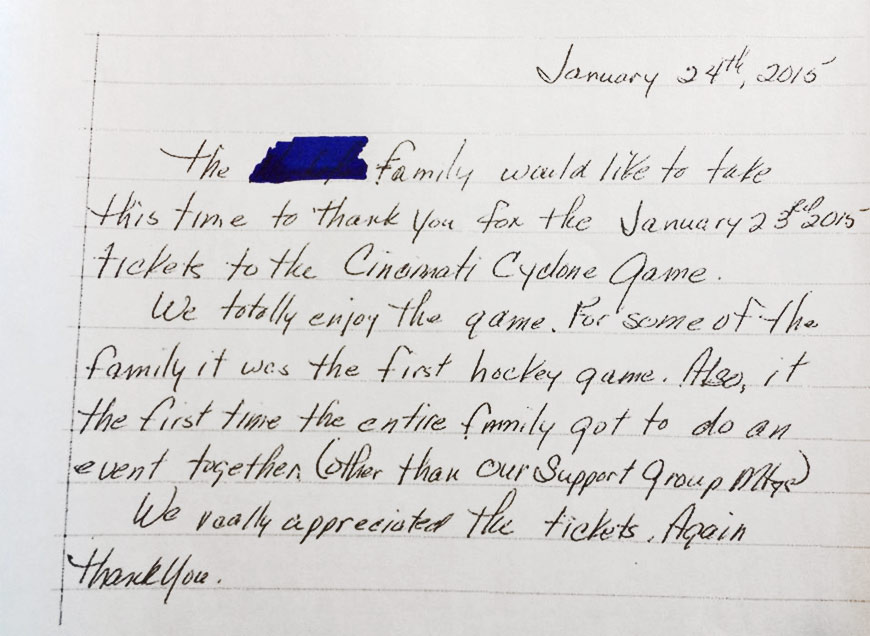 January 24th, 2015
The family would like to take
this time to thank you for the January 23rd 2015
tickets to the Cincinnati Cyclone Game.
We totally enjoy the game. For some of the
family it was the first hockey game. Also, it
the first time the entire family got to do an
event together. (other than our Support Group Mtgs)
We really appreciated the tickets. Again
thank You.